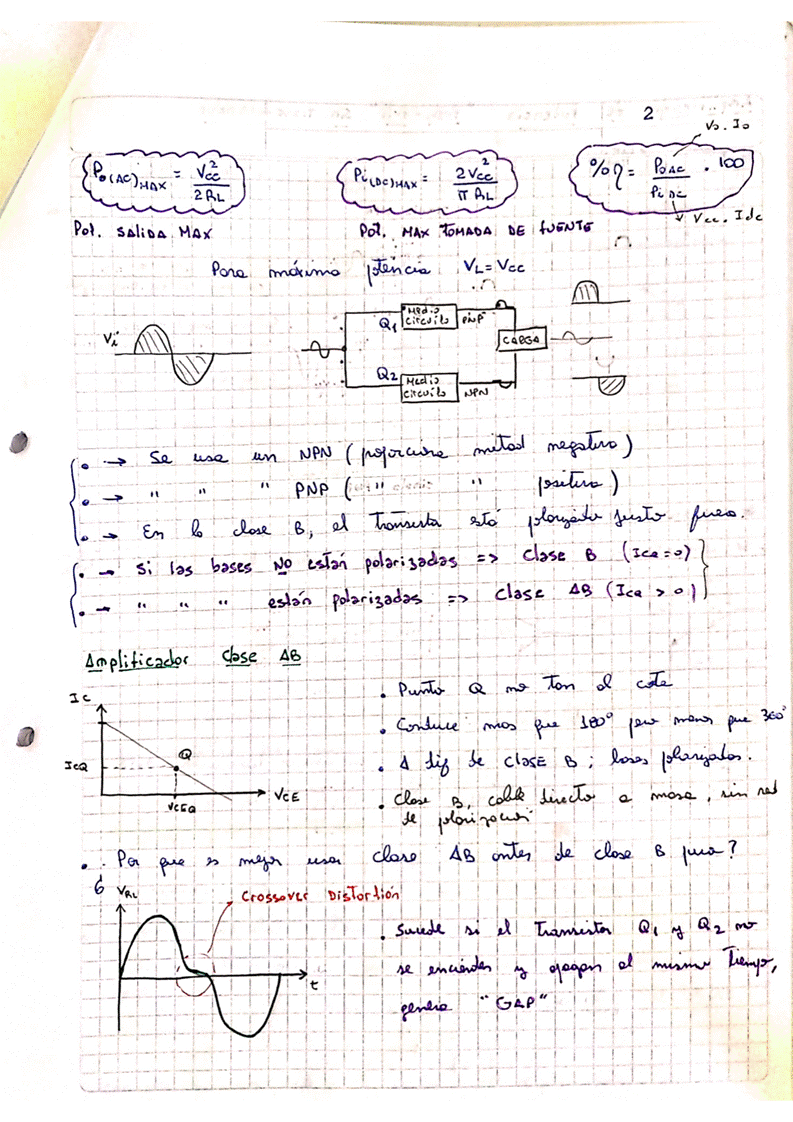 2
Vo. Io
Po(AC)MAX = Vcc² / 2RL
Pi(DC)MAX = 2Vcc² / π RL
% η = PoAC / Pi DC . 100
Vcc. Idc
Pot. SALIDA MAX
Pot. MAX TOMADA DE FUENTE
Para máxima potencia VL = Vcc
Vi
Q1
Medio circuito
PNP
CARGA
Q2
Medio circuito
NPN
• → Se usa un NPN ( proporciona mitad negativa )
• → " " " PNP ( " " positiva )
• → En la clase B, el transistor está polarizado justo fuera.
• → Si las bases No están polarizadas => clase B (IcQ = 0)
• → " " " están polarizadas => clase AB (IcQ > 0)
Amplificador Clase AB
Ic
ICQ
Q
VCEQ
VCE
• Punto Q no tan al corte
• Conduce mas que 180° pero menos que 360°
• A dif de CLASE B; bases polarizadas.
• Clase B, cable directo a masa, sin red
de polarización
• Por que es mejor usar clase AB antes de clase B pura?
6
VRL
Crossover Distortion
t
• Sucede si el Transistor Q1 y Q2 no
se encienden y apagan al mismo Tiempo,
genera "GAP"